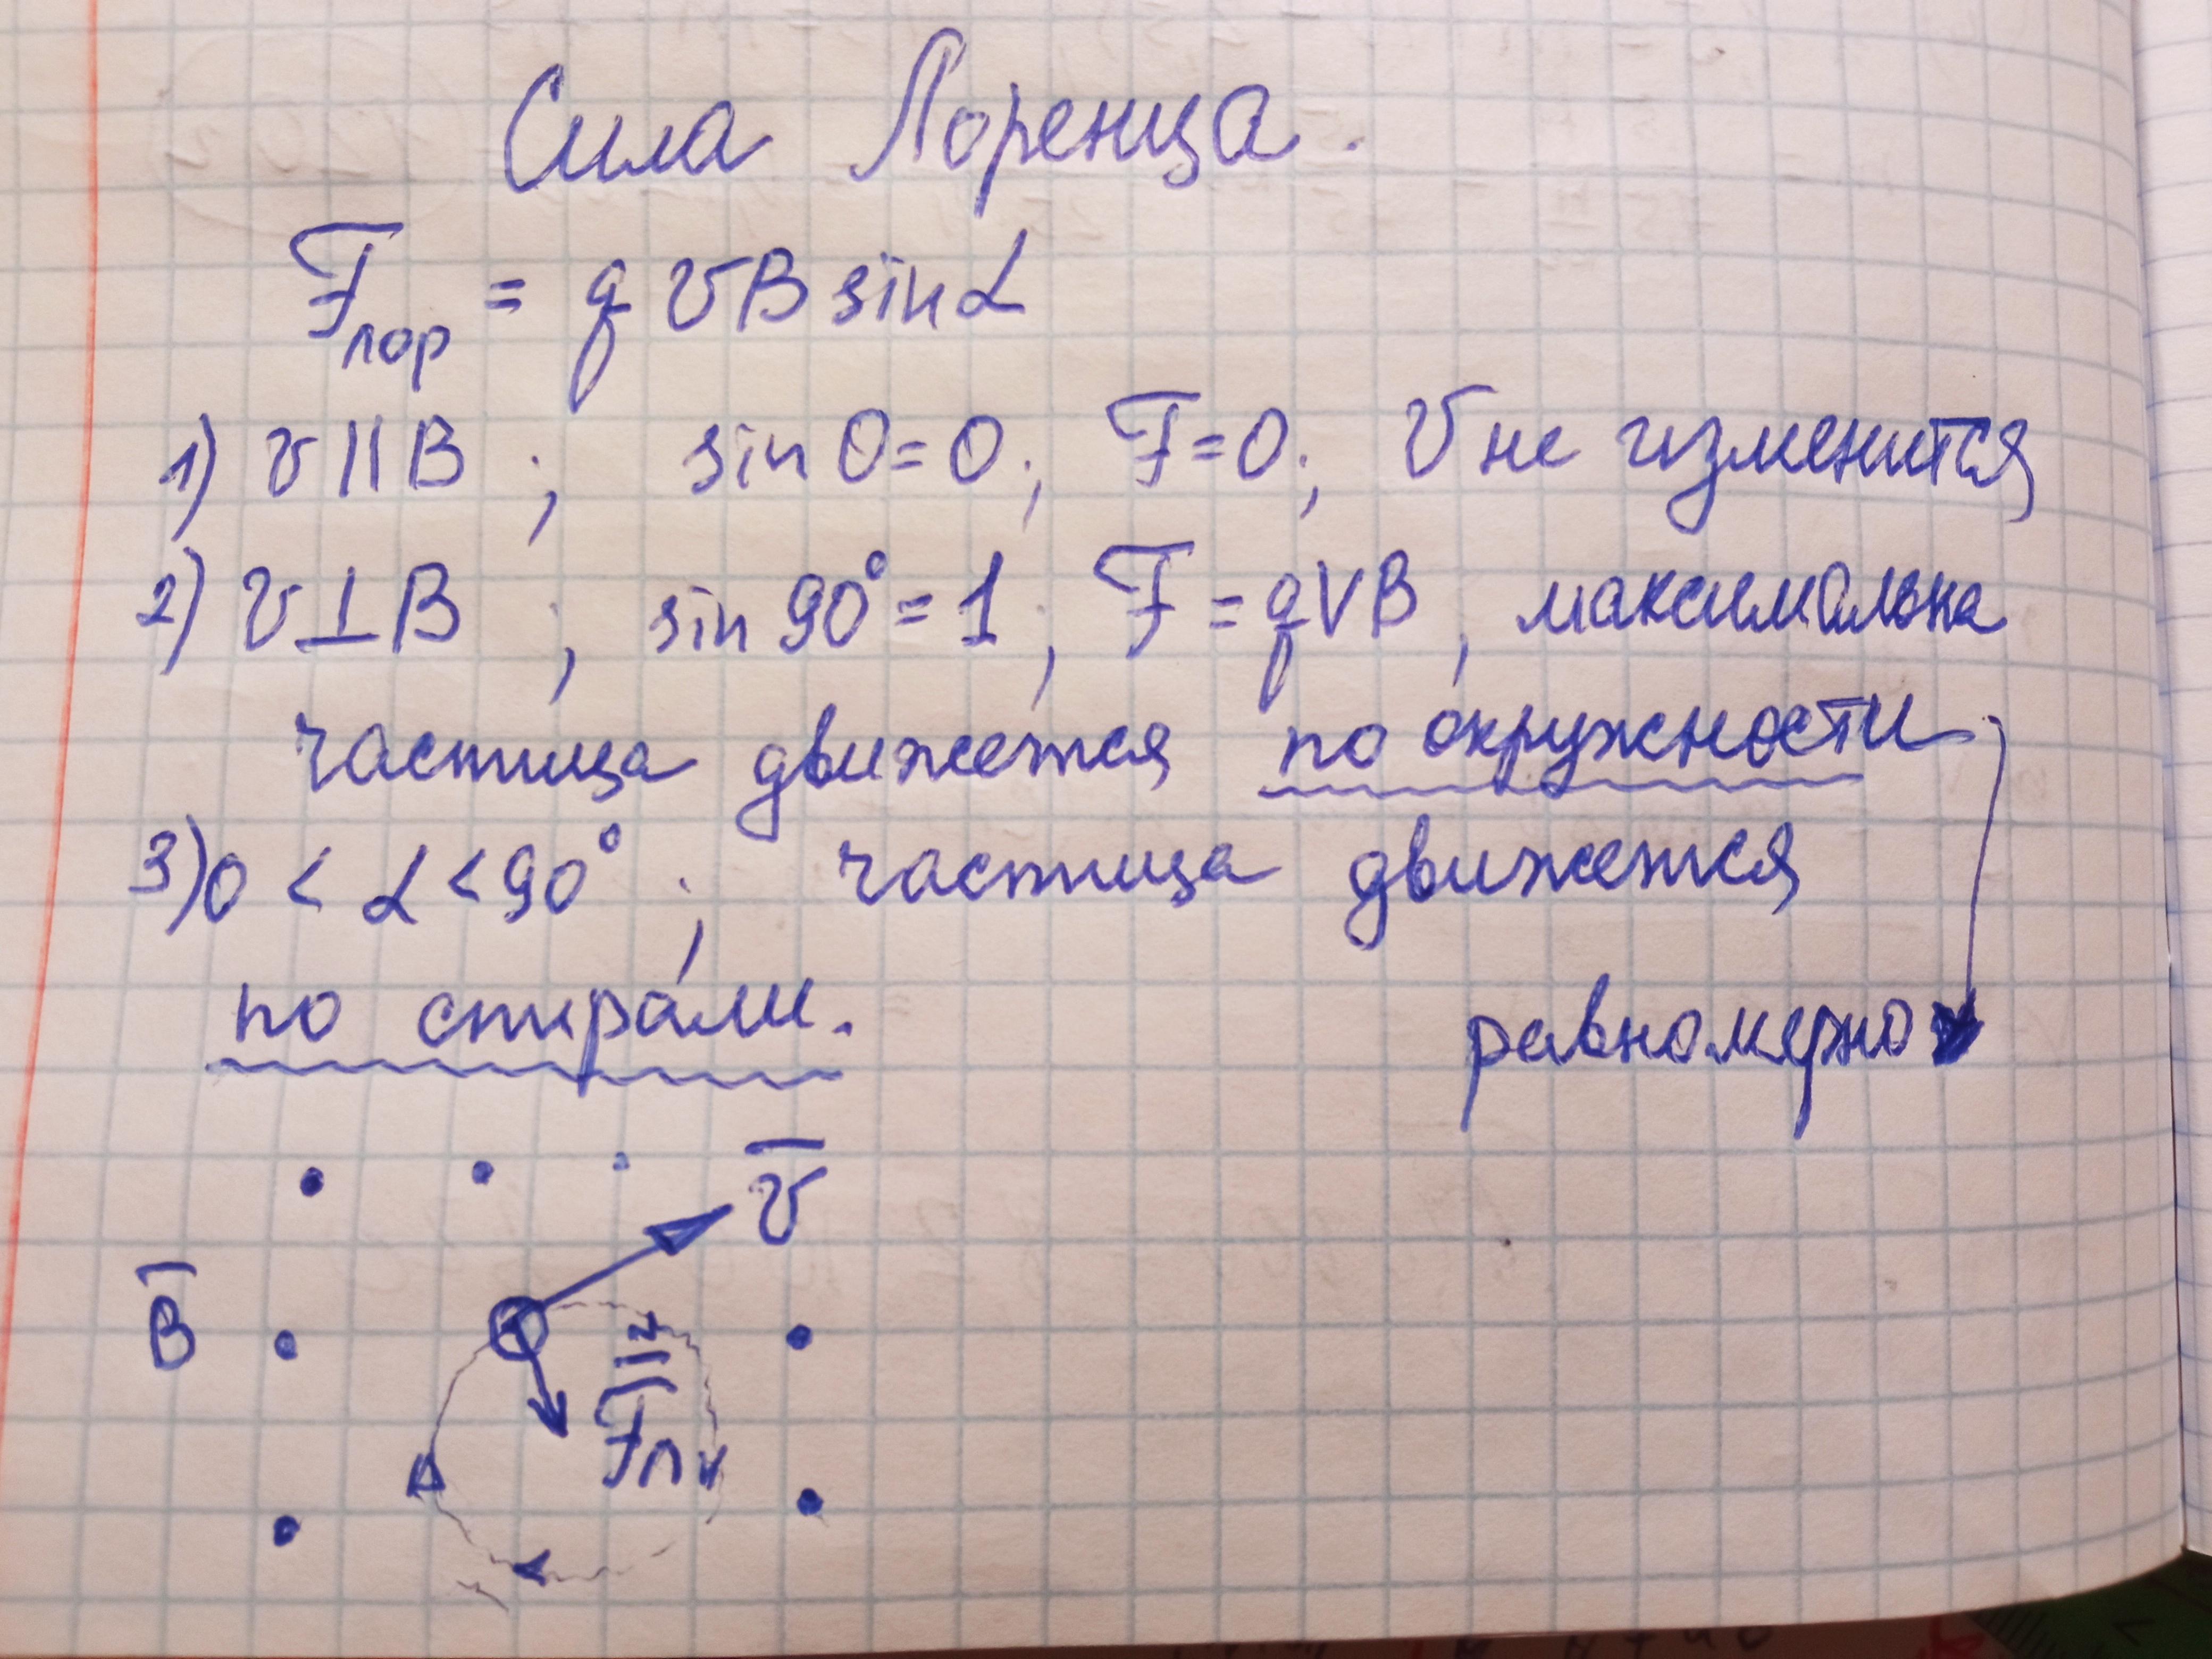 Сила Лоренца.
Fлор = qvB sinα
1) v || B ; sin 0 = 0 ; F = 0 ; v не изменится
2) v ⊥ B ; sin 90° = 1 ; F = qVB , максимальна
частица движется по окружности
3) 0 < α < 90° ; частица движется
по спирали.
равномерно
v̅
B̅
F̅л